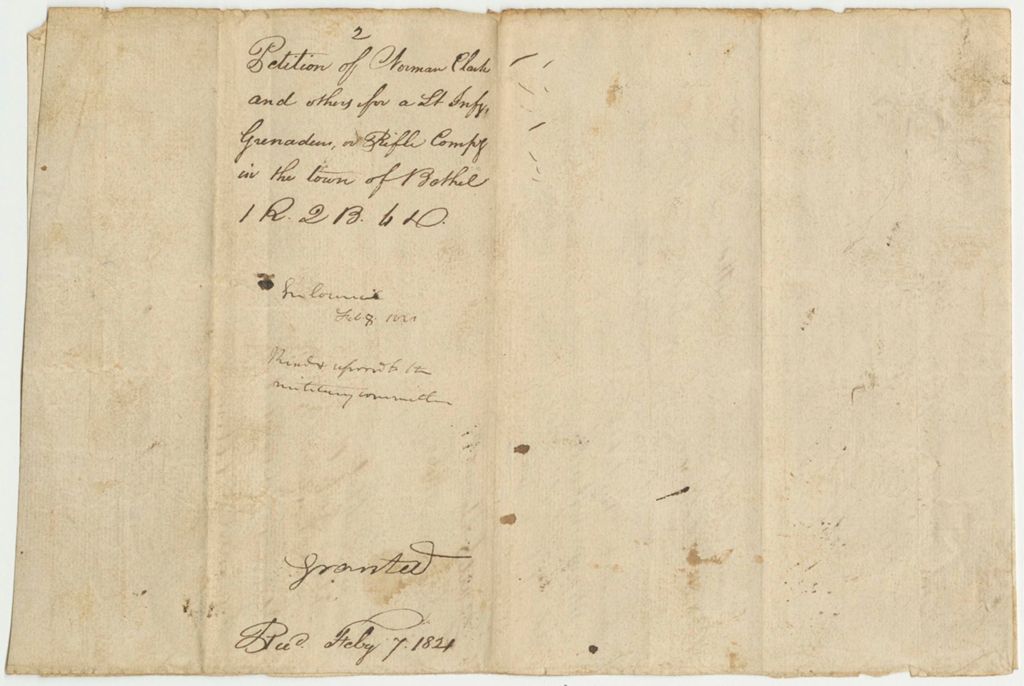 2
Petition of Norman Clark
and others for a Lt Infy,
Grenadiers, or Rifle Compy
in the town of Bethel
1 R. 2 B. 6 D.
In Council
Feb 8 1821
Read & referred to the
military committee
Granted
Recd. Feby 7. 1821